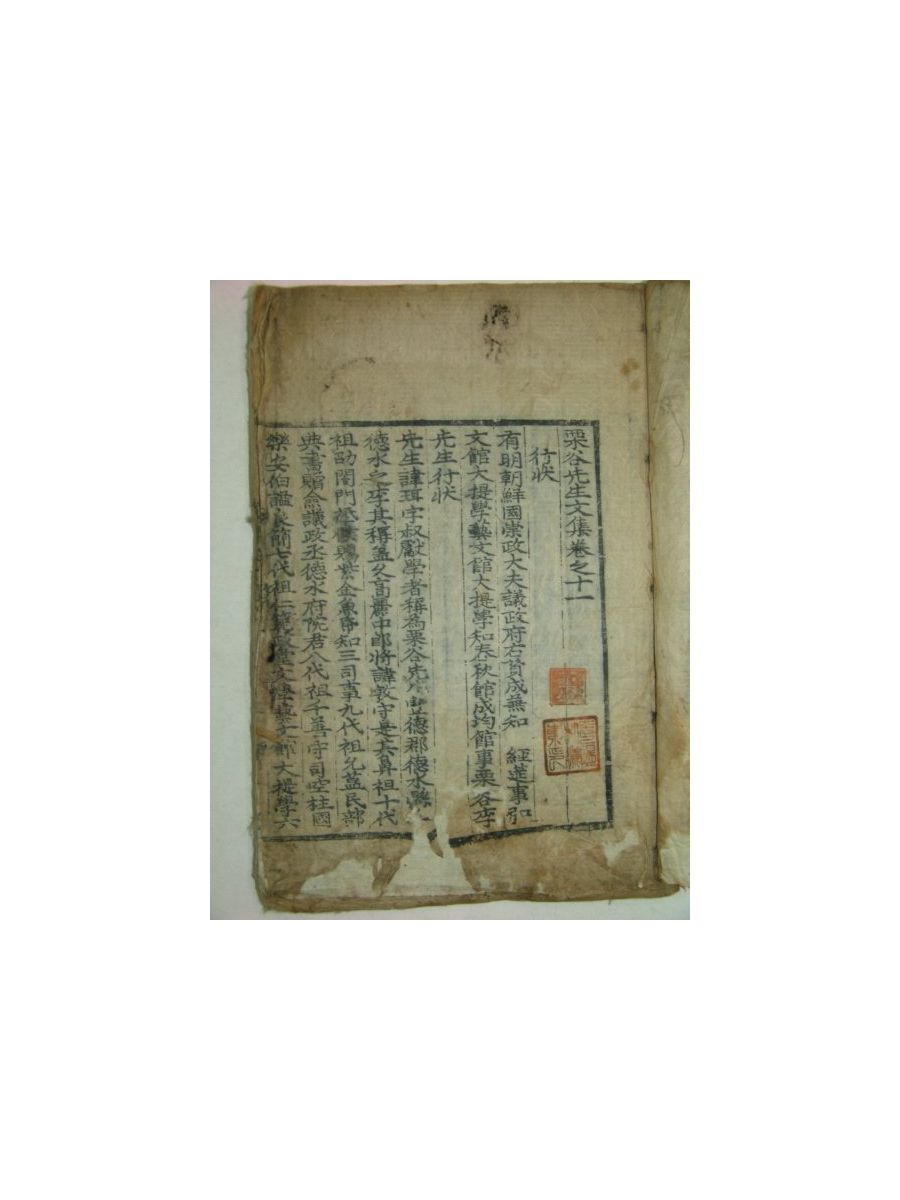 栗谷先生文集卷之十一
行狀
有明朝鮮國崇政大夫議政府右贊成兼知 經筵事弘
文館大提學藝文館大提學知春秋館成均館事栗谷李
先生行狀
先生諱珥字叔獻學者稱為栗谷先生豊德郡德水縣人
德水之李其稱盖久高麗中郎將諱敦守是其鼻祖十代
祖劭閤門祗候賜紫金魚帒知三司事九代祖允蒀民部
典書贈僉議政丞德水府院君八代祖千善守司空柱國
樂安伯謚良簡七代祖仁範政堂文學藝文館大提學六